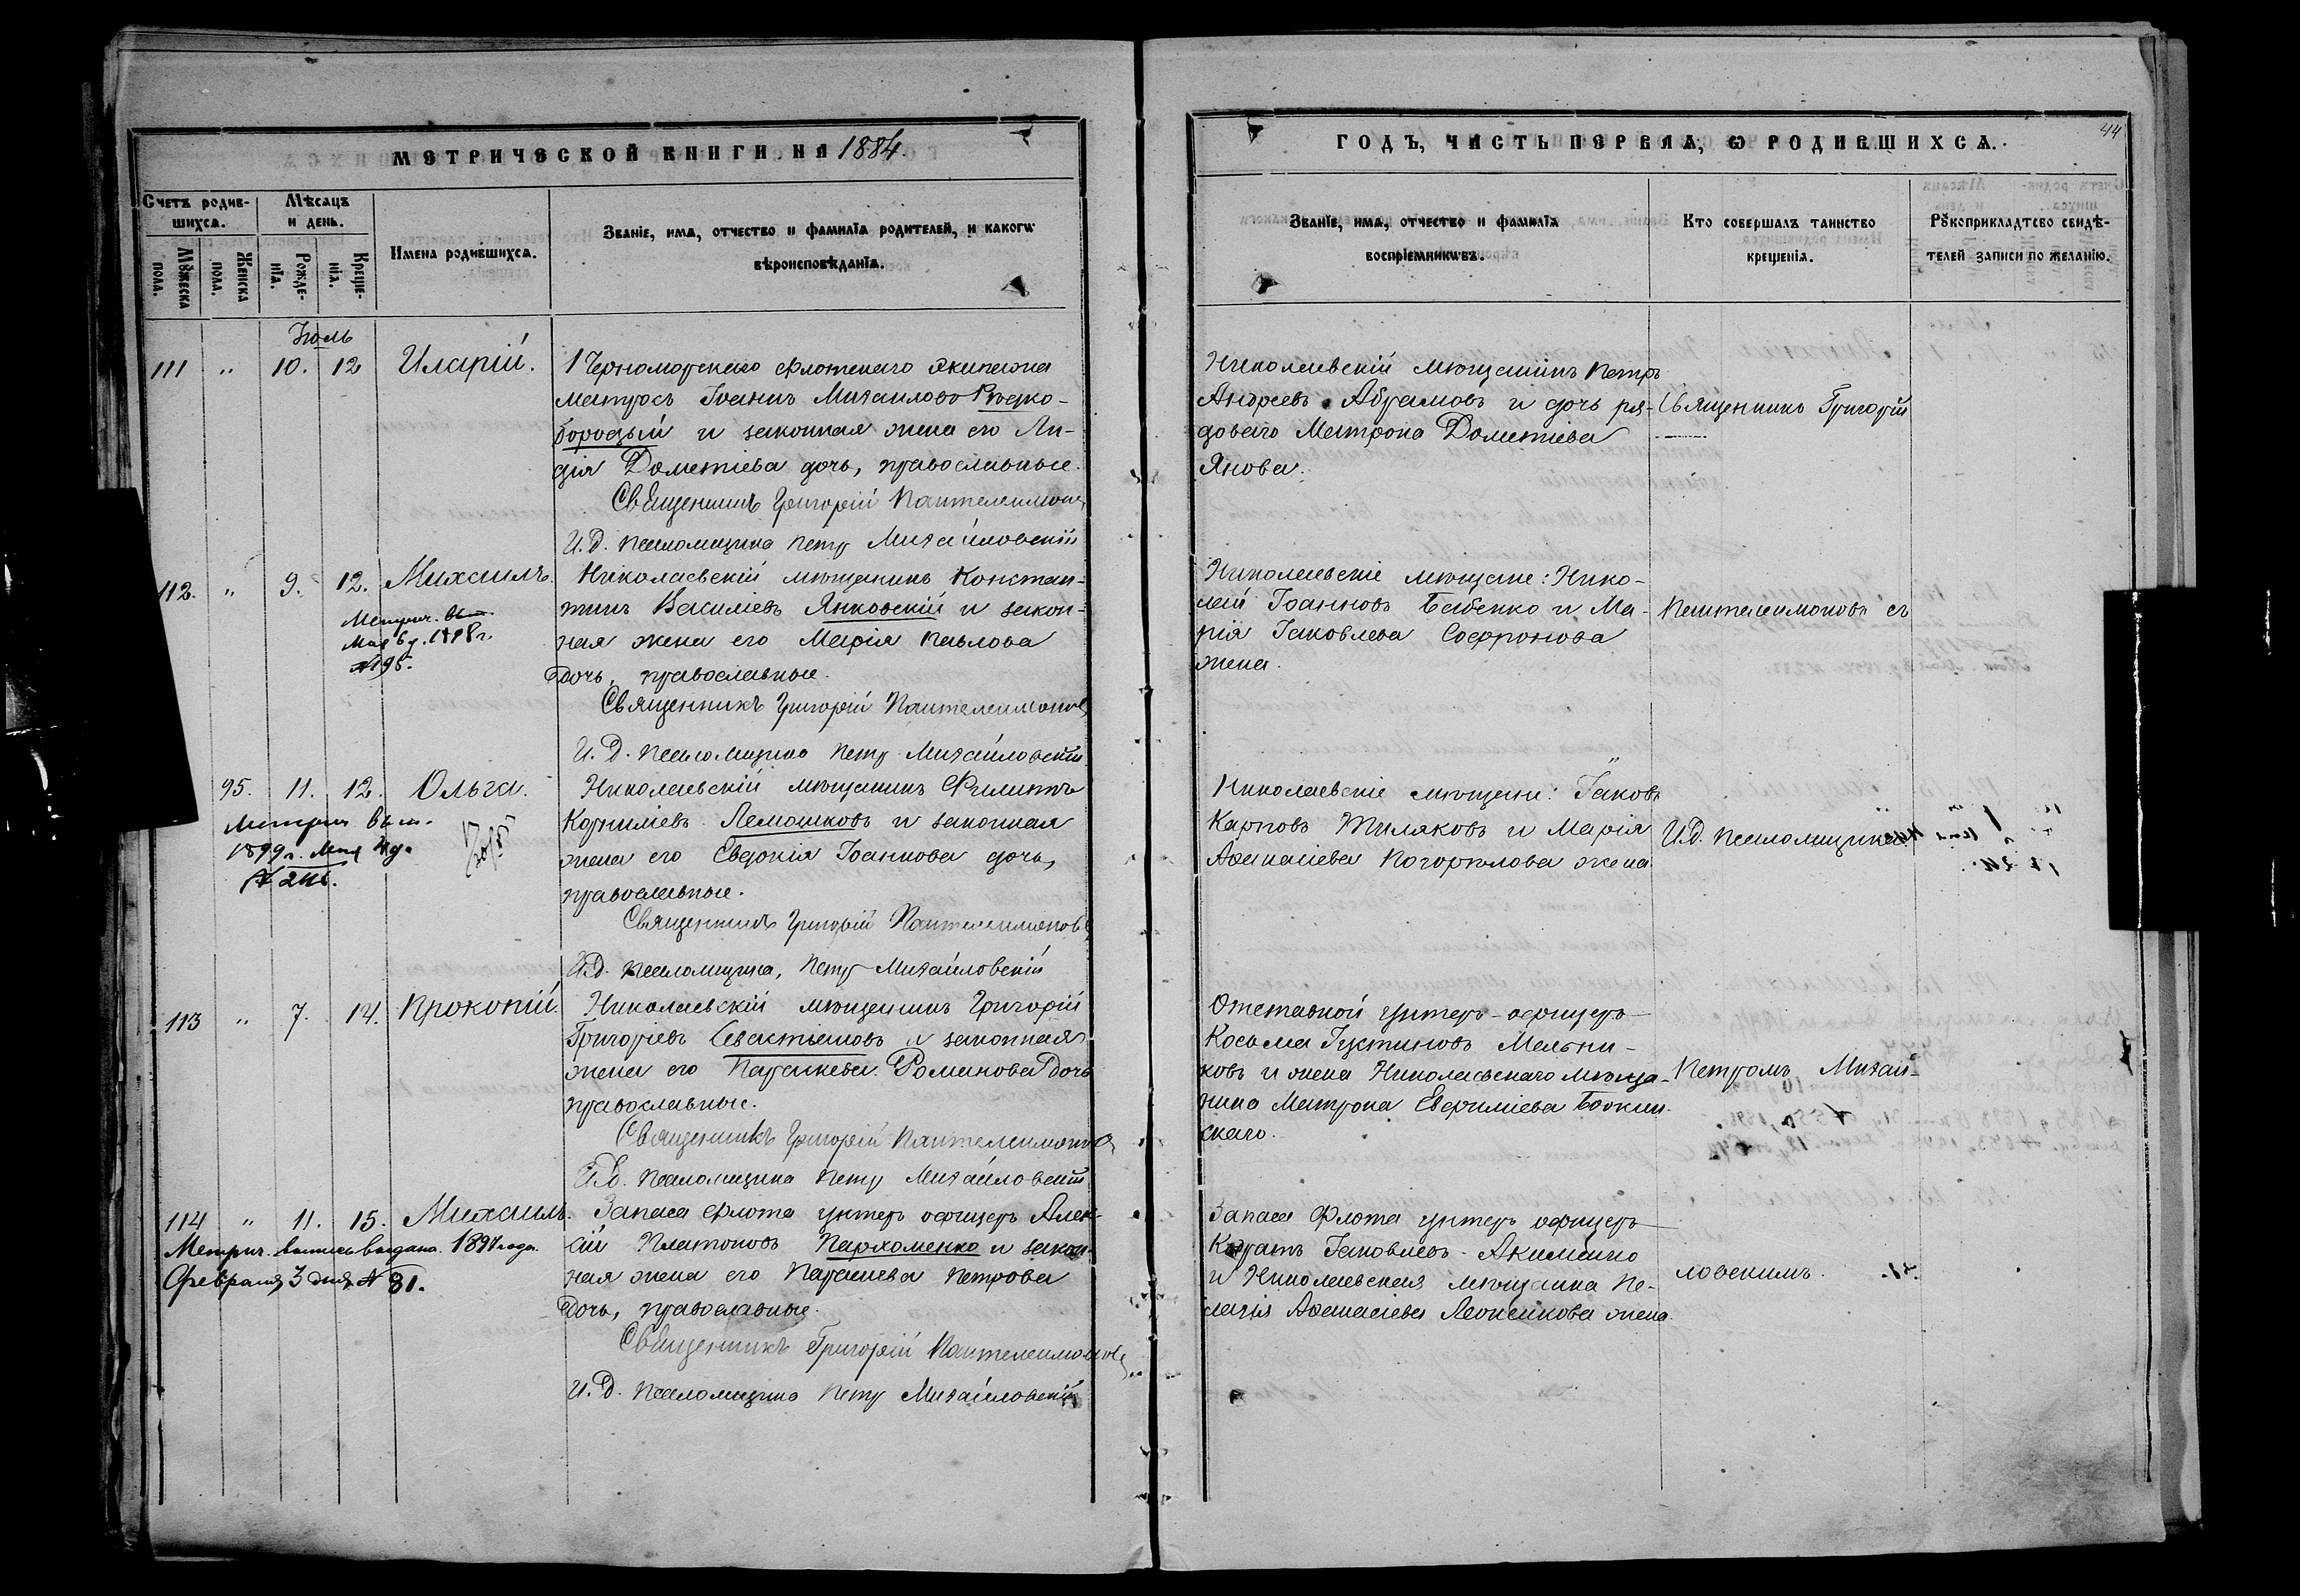 МЕТРИЧЕСКОЙ КНИГИ НА 1884.
Счетъ родившихся.
Мѣсяцъ и день.
Мужеска пола.
Женска пола.
Рожденія.
Крещенія.
Имена родившихся.
Званіе, имя, отчество и фамилія родителей, и какого
вѣроисповѣданія.
Іюль
111 " 10. 12 Иларій.
1 Черноморскаго флотскаго экипажа
матросъ Іоаннъ Михаиловъ Рѣдко-
бородый и законная жена его Ли-
дія Дометіева дочь, православные.
Священникъ Григорій Пантелеимоновъ
И. Д. псаломщика Петръ Михайловскій
112. " 9. 12. Михаилъ.
Метрич. вып.
Мая 6 д. 1898 г.
№ 195.
Николаевскій мѣщанинъ Констан-
тинъ Василіевъ Янковскій и закон-
ная жена его Марія Павлова
дочь, православные.
Священникъ Григорій Пантелеимоновъ
И. Д. псаломщика Петръ Михайловскій
95. 11. 12. Ольга.
Метрич. вып.
1899 г. Мая 4 д.
Николаевскій мѣщанинъ Филиппъ
Корниліевъ Лемошковъ и законная
жена его Евдокія Іоаннова дочь,
православные.
Священникъ Григорій Пантелеимоновъ
И. Д. псаломщика, Петръ Михайловскій
113 " 7. 14. Прокопій.
Николаевскій мѣщанинъ Григорій
Григоріевъ Севастьяновъ и законная
жена его Параскева Романова дочь
православные.
Священникъ Григорій Пантелеимоновъ
И. Д. псаломщика Петръ Михайловскій
114 " 11. 15. Михаилъ.
Метрич. выпись выдана 1897 года
Февраля 3 дня № 81.
Запаса флота унтеръ офицеръ Алек-
сій Платоновъ Пархоменко и закон-
ная жена его Параскева Петрова
дочь, православные.
Священникъ Григорій Пантелеимоновъ
И. Д. псаломщика Петръ Михайловскій
ГОДЪ, ЧАСТЬ ПЕРВАЯ, О РОДИВШИХСЯ.
44
Званіе, имя, отчество и фамилія
воспріемниковъ.
Кто совершалъ таинство
крещенія.
Рукоприкладтсво свидѣ-
телей записи по желанію.
Николаевскій мѣщанинъ Петръ
Андреевъ Абрамовъ и дочь ря-
доваго Матрона Дометіева
Янова.
Священникъ Григорій
Николаевскіе мѣщане: Нико-
лай Іоанновъ Бабенко и Ма-
рія Іаковлева Софронова
жена.
Пантелеимоновъ съ
Николаевскіе мѣщане: Іаковъ
Карповъ Жиляковъ и Марія
Аѳанасіева Погорѣлова жена
И. Д. псаломщика
Отставной унтеръ-офицеръ
Косьма Іустиновъ Мельни-
ковъ и жена Николаевскаго мѣща-
нина Матрона
скаго.
Петромъ Михай-
Запаса флота унтеръ офицеръ
Іаковлевъ Акименко
и Николаевская мѣщанка Пе-
лагія Аѳанасіева Леоненкова жена.
ловскимъ.